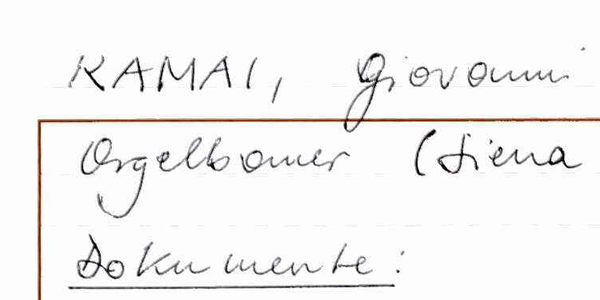 KAMAI, Giovanni
Orgelbauer (Siena
Dokumente: